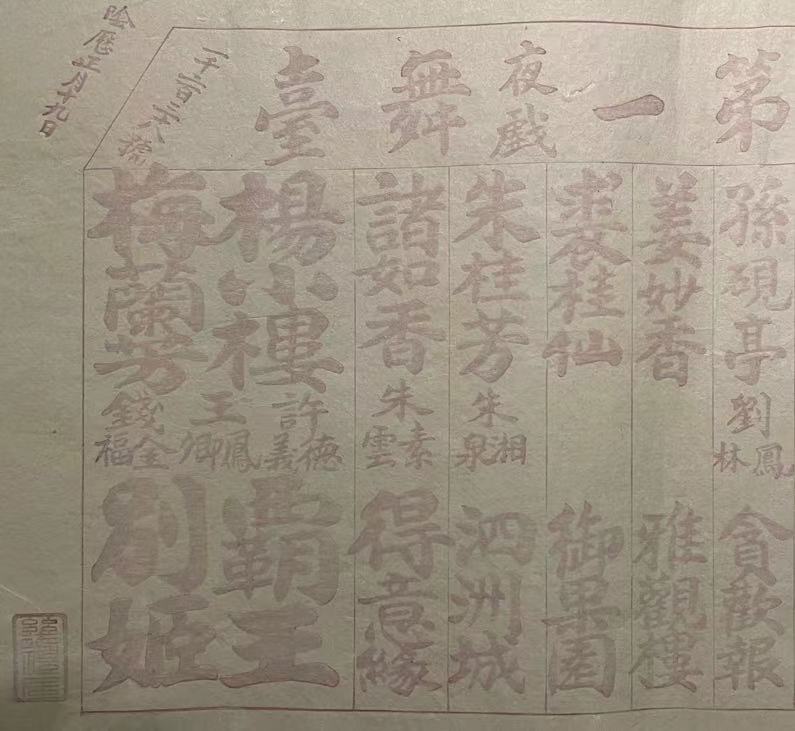 第一舞臺
夜戲
一千二百三十八號
陰歷正月十九日
孫硯亭
劉鳳林
貪歡報
姜妙香
雅觀樓
裘桂仙
御果園
朱桂芳
朱湘泉
泗洲城
諸如香
朱素雲
得意緣
楊小樓
梅蘭芳
許德義
王鳳卿
錢金福
霸王
別姬